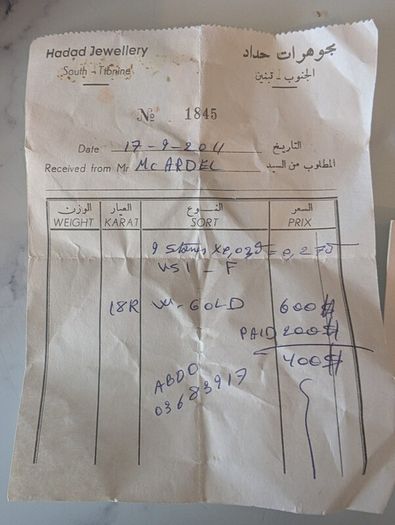 Hadad Jewellery
مجوهرات حداد
South - Tibnine
الجنوب - تبنين
№ 1845
Date 17-9-2011 التاريخ
Received from Mr Mc ARDEL المطلوب من السيد
الوزن العيار النوع السعر
WEIGHT KARAT SORT PRIX
9 Stones x 0,03 = 0,27
VS1 - F
18K W-GOLD 600$
PAID 200$
400$
ABDO
03683917